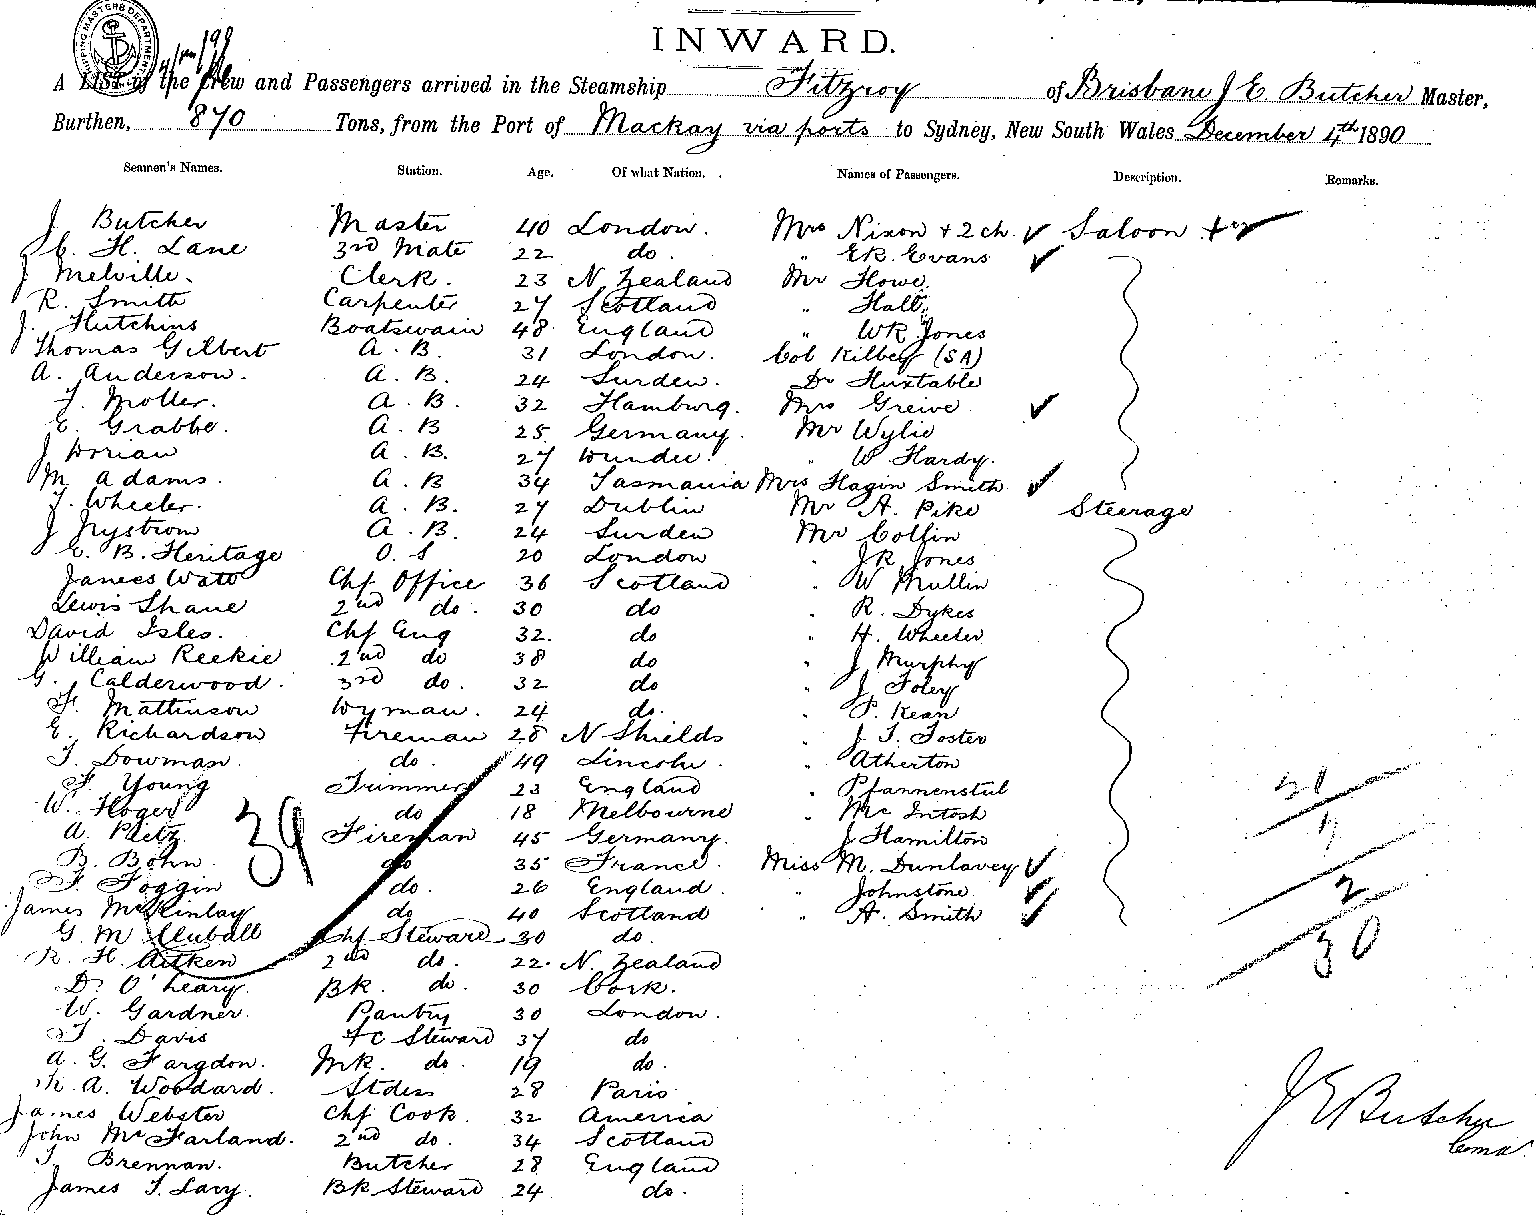 SHIPPING MASTERS DEPARTMENT
INWARD.
A LIST of the Crew and Passengers arrived in the Steamship Fitzroy of Brisbane J E Butcher Master,
Burthen, 870 Tons, from the Port of Mackay via ports to Sydney, New South Wales December 4th 1890
Seamen's Names. Station. Age. Of what Nation. Names of Passengers. Description. Remarks.
J Butcher Master 40 London. Mrs Nixon + 2 ch. Saloon
C. H. Lane 3rd Mate 22 do " ER. Evans
J Melville. Clerk. 23 N Zealand Mr Howe.
R. Smith Carpenter 27 Scotland " Hall
J. Hutchins Boatswain 48 England " WR Jones
Thomas Gilbert A. B. 31 London. Col Kilbey (SA)
A. Anderson. A. B. 24 Surden. Dr Huxtable
J. Moller. A. B. 32 Hamburg. Mrs Greive
E. Grabbe. A. B 25 Germany. Mr Wylie
J Dorian A. B. 27 Dundee. " W Hardy.
M Adams. A. B 34 Tasmania Mrs Hagin Smith
T. Wheeler. A. B. 27 Dublin Mr A. Pike Steerage
J Nystrom A. B. 24 Surden Mr Collin
E. B. Heritage O. S 20 London " JR Jones
James Watt Chf Office 36 Scotland " W Mullin
Lewis Shane 2nd do. 30 do " R. Dykes
David Isles. Chf Eng 32. do " H. Wheeler
William Reekie 2nd do 38 do " J Murphy
G. Calderwood. 3rd do. 32 do " J Foley
F. Mattinson Wyman. 24 do. " P. Kean
E. Richardson Fireman 28 N Shields " J. T. Foster
T. Dowman. do. 49 Lincoln. " Atherton
F. Young Trimmer 23 England " Pfannenstul
W. Hoger do 18 Melbourne " Mc Intosh
A Pietz Fireman 45 Germany. J Hamilton
B. Bohn. do 35 France. Miss M. Dunlavey
F. Foggin do. 26 England. " Johnstone
James McKinlay do 40 Scotland " A. Smith
G. M Cluball Chf Steward 30 do.
R. H. Aitken 2nd do. 22. N. Zealand
D. O'Leary. BK. do. 30 Cork.
W. Gardner. Pantry 30 London.
T. Davis FC Steward 37 do
A. G. Fargdon. MK. do. 19 do.
K. A. Woodard. Stdess 28 Paris
James Webster Chf Cook. 32 America
John McFarland. 2nd do. 34 Scotland
T. Brennan. Butcher 28 England
James T. Lavy. BK Steward 24 do.
39
2
30
J E Butcher